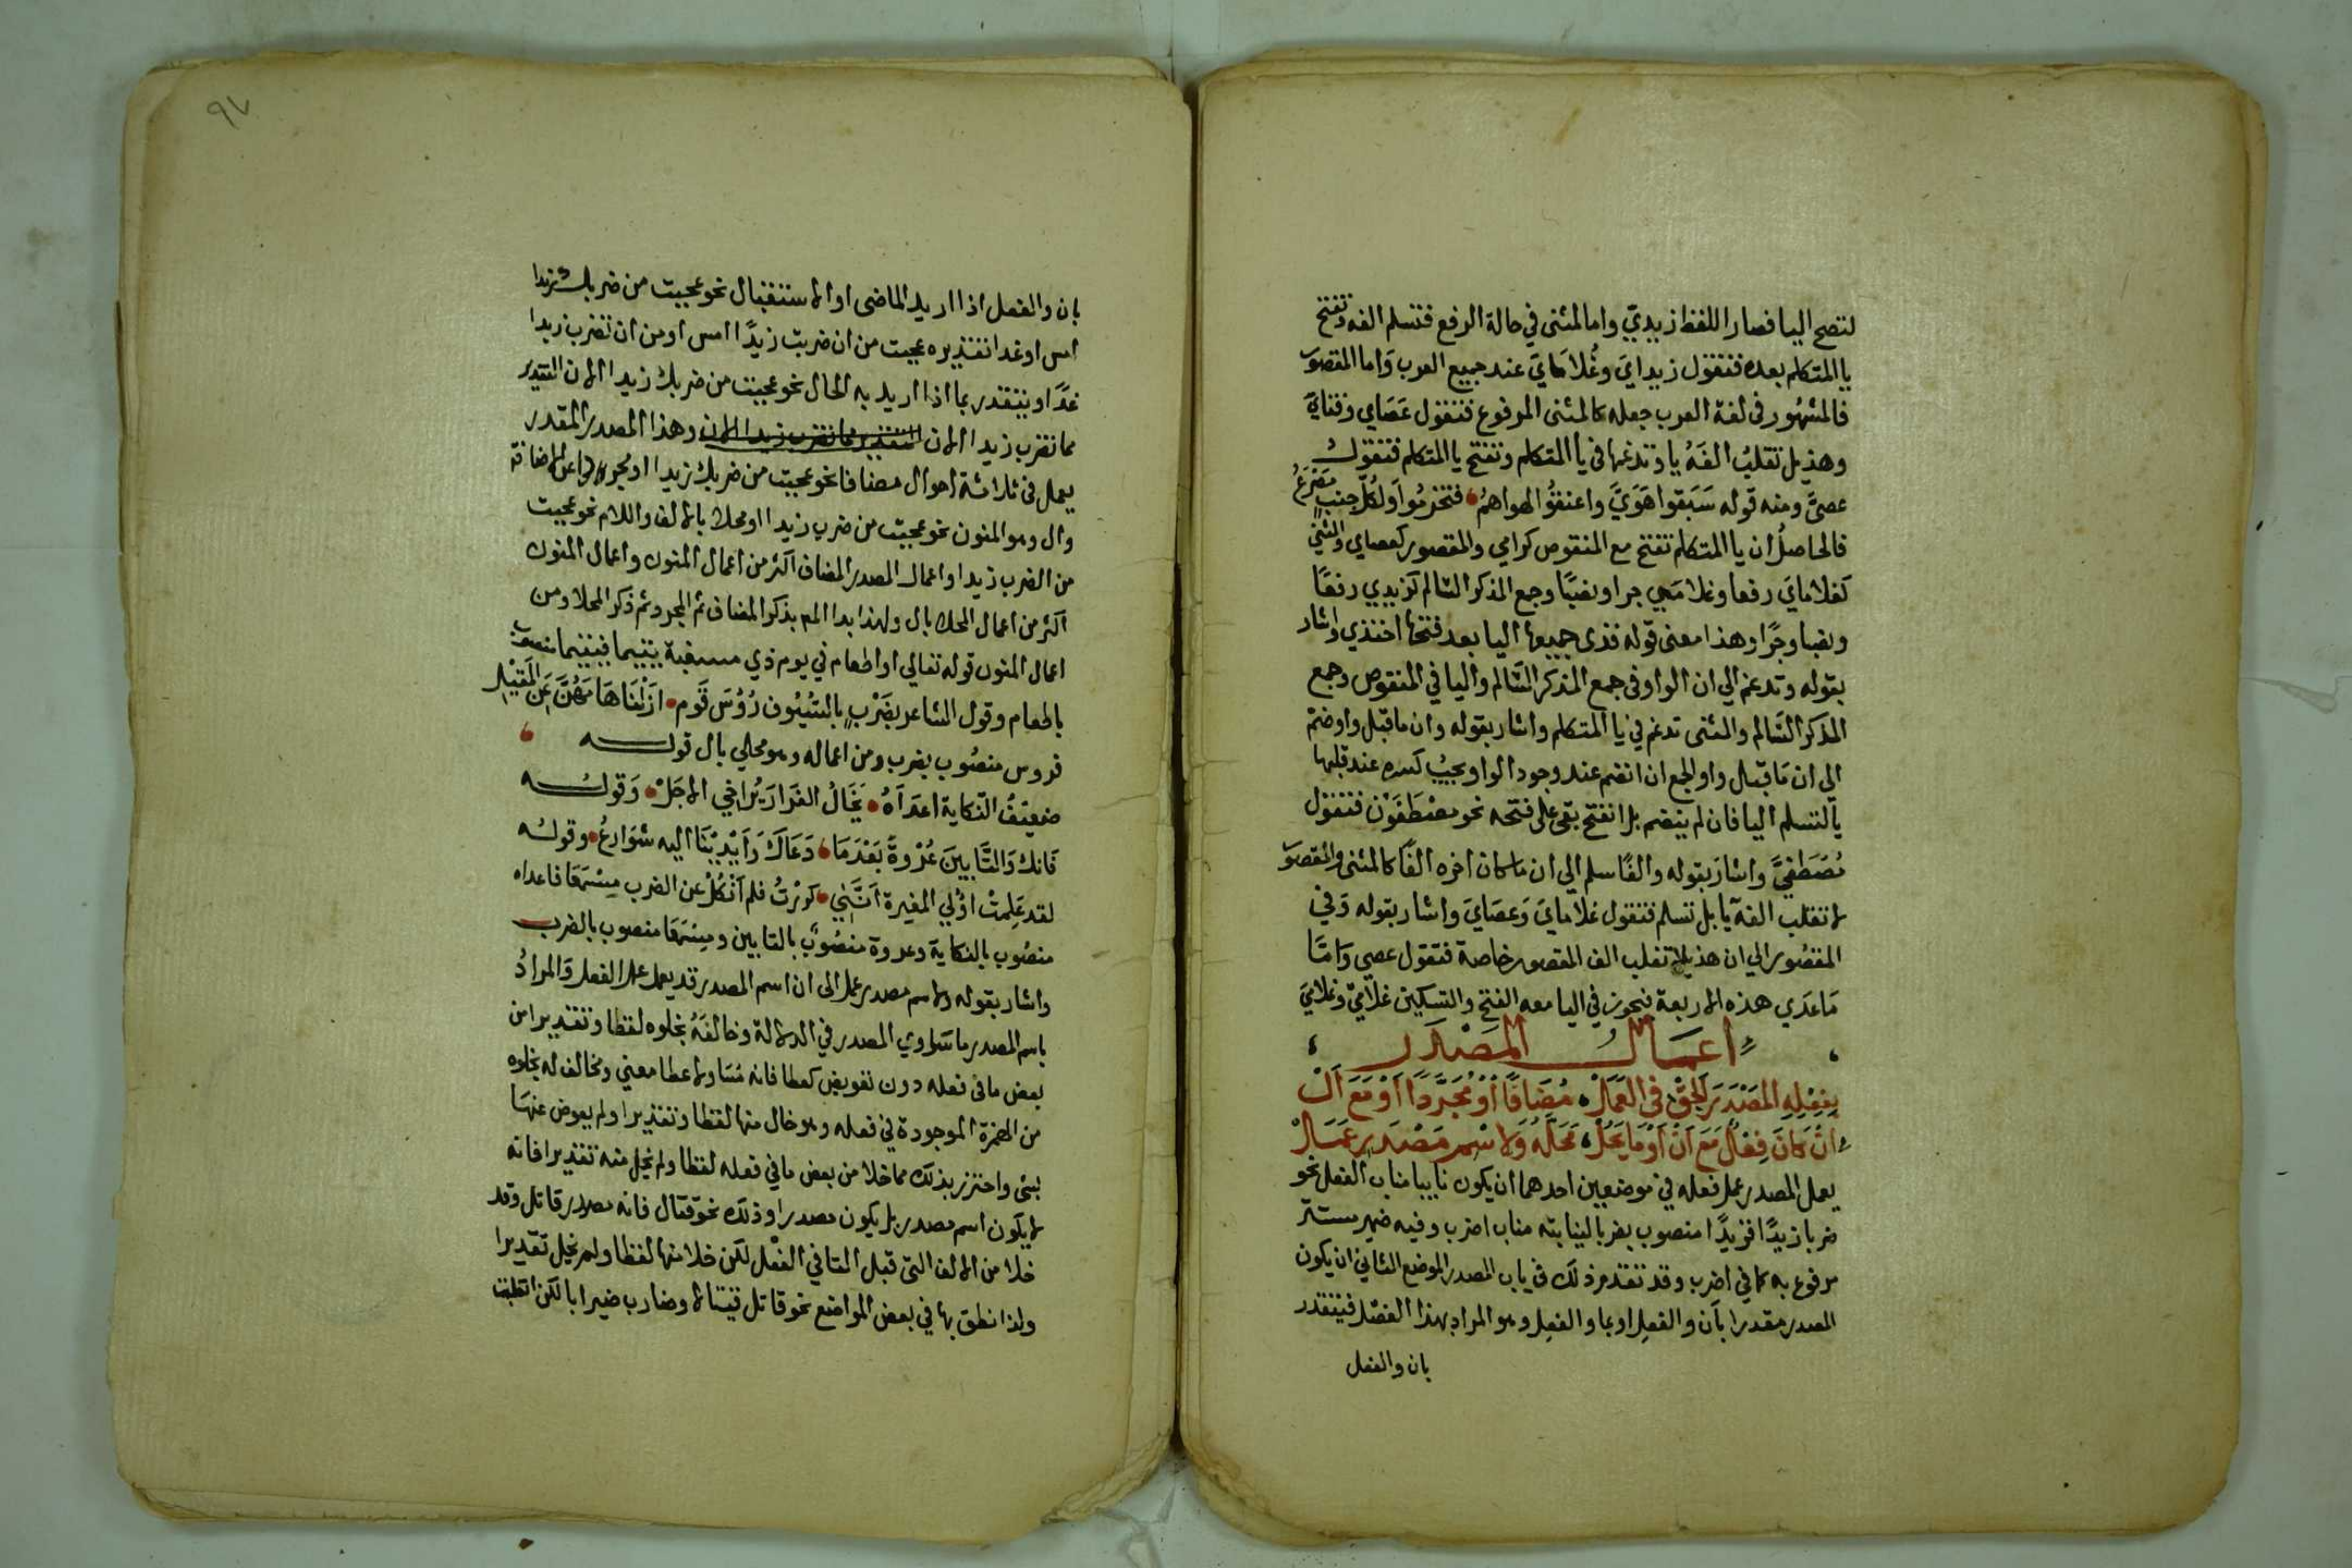 لتصح اليا فصار اللفظ زيديّ واما المثنى في حالة الرفع فتسلم الفه وتفتح
يا المتكلم بعده فتقول زيدايَ وغُلامايَ عند جميع العرب وَاما المقصور
فالمشهور في لغة العرب جعله كالمثنى المرفوع فتقول عَصَاي وفتايَ
وهذيل تقلبُ الفَهُ يا وتدغمها في يا المتكلم وتفتح يا المتكلم فتقول
عصيَّ ومنه قوله سَبَقوا هَوَيَّ واعنقُوا لهواهُم فتخرمُوا ولكُلّ جنبٍ مَصْرَعُ
فالحاصلُ ان يا المتكلم تفتح مع المنقوص كرامي والمقصور كعصاي والمثني
كغلامايَ رفعا وغلامَيي جرا ونصبًا وجمع المذكر السّالم كزيدي رفعًا
ونصبا وجرًا وهذا معنى قوله فذي جميعها اليا بعد فتحها احتذي واشار
بقوله وتدغم الي ان الواو في جمع المذكر السَّالم واليا في المنقوص وجمع
المذكر السَّالم والمثنى تدغم في يا المتكلم واشار بقوله وان ما قبل واو ضمّ
الى ان مَا قبل واو الجمع ان انضم عند وجود الواو يجبُ كسره عند قلبها
يا لتسلم اليا فان لم ينضم بل انفتح بقى على فتحه نحو مصْطَفَوْن فتقول
مُصْطَفَيَّ واشارَ بقوله والفًا سلم الي ان ما كان اخره الفًا كالمثنى والمقصور
لا تقلب الفه يا بل تسلم فتقول غلامايَ وَعصَايَ واشار بقوله وَفي
المقصُور الي ان هذيلا تقلب الف المقصور خاصة فتقول عصي وَامّا
مَا عدَي هذه الاربعة فيجوز في اليا معه الفتح والتسكين غلاميَ وغلاميْ
اعمالُ المَصْدَر
بِفِعْلِهِ المَصْدَرَ اَلحِقْ في العَمَلْ مُضَافًا اَوْ مُجَرَّدًا اَوْ مَعَ اَلْ
اِنْ كَانَ فِعْلٌ مَعَ اَنْ اَوْ مَا يَحُلْ مَحَلَّهُ وَلِاسْمِ مَصْدَرٍ عَمَلْ
يعمل المصدر عمل فعله في موضعين احدهما ان يكون نايبا مناب الفعل نحو
ضربا زيدًا فزيدًا منصوب بضربا لنيابته مناب اضرب وفيه ضمير مستتر
مرفوع به كما في اضرب وقد تقدم ذلك في باب المصدر الموضع الثاني ان يكون
المصدر مقدرا بأن والفعل او بما والفعل وهو المراد بهذا الفصل فيتقدر
بان والفعل
٩٧
بان والفعل اذا اريد الماضى او الاستقبال نحو عجبت من ضربك زيدا
امس او غدا تقديره عجبت من ان ضربت زيدًا امس او من ان تضرب زيدا
غدًا ويتقدر بما اذا اريد به الحال نحو عجبت من ضربك زيدا الان التقدير
مما تضرب زيدا الان التقدير مما تضرب زيدا الان وهذا المصدر المقدر
يعمل في ثلاثة احوال مضافا نحو عجبت من ضربك زيدا او مجردا عن الاضافة
وال وهو المنون نحو عجبت من ضرب زيدا او محلا بالالف واللام نحو عجبت
من الضرب زيدا واعمال المصدر المضاف اكثر من اعمال المنون واعمال المنون
اكثر من اعمال المحلا بال ولهذا بدا المص بذكر المضاف ثم المجرد ثم ذكر المحلا ومن
اعمال المنون قوله تعالي او اطعام في يوم ذي مسغبة يتيما فيتيما منصوب
باطعام وقول الشاعر بضَرْبٍ بالسّيُوف رُؤسَ قَومٍ ازَلْنَا هَامَهُنَّ عَن المَقِيْلِ
فروس منصُوب بضرب ومن اعماله وهو محلي بال قوله
ضعيفُ النّكاية اعدَاَهُ يَخَالُ الفرَارَ يُرَاخي الاجَلْ وَقوله
فَانكَ وَالتَّابينَ عُرْوةَ بَعْدَمَا دَعَاكَ وَاَيْدِيْنَا اليه شوَارِعُ وقولُه
لقد عَلِمتْ اوُلي المغيرة اَنّني كررْتُ فلم اَنْكُلْ عن الضرب مِسْمَعَا فاعداه
منصُوب بالنكاية وعروة منصُوب بالتابين ومِسْمَعَا منصوب بالضرب
واشار بقوله ولاسم مصدر عمل الى ان اسم المصدر قد يعمل عمل الفعل وَالمرادُ
باسم المصدر ما سَاوي المصدر في الدلالة وخالفَهُ بخلوه لفظا وتقديرا من
بعض ما في فعله دون تعويض كعطا فانه مُسَاو لاعطا معني ومخالف له بخلوه
من الهمزة الموجودة في فعله وهو خال منها لفظا وتقديرا ولم يعوض عنهَا
بشئ واحترز بذلك مما خلا من بعض ما في فعله لفظا ولم يخل منه تقديرا فانه
لا يكون اسم مصدر بل يكون مصدرا وذلك نحو قتال فانه مصدر قاتل وقد
خلا من الالف التى قبل التا في الفعْل لكن خلا منها لفظا ولم يخل تقديرا
ولذا نطق بها في بعض المواضع نحو قاتل قيتالا وضارب ضيرابا لكن انقلبت